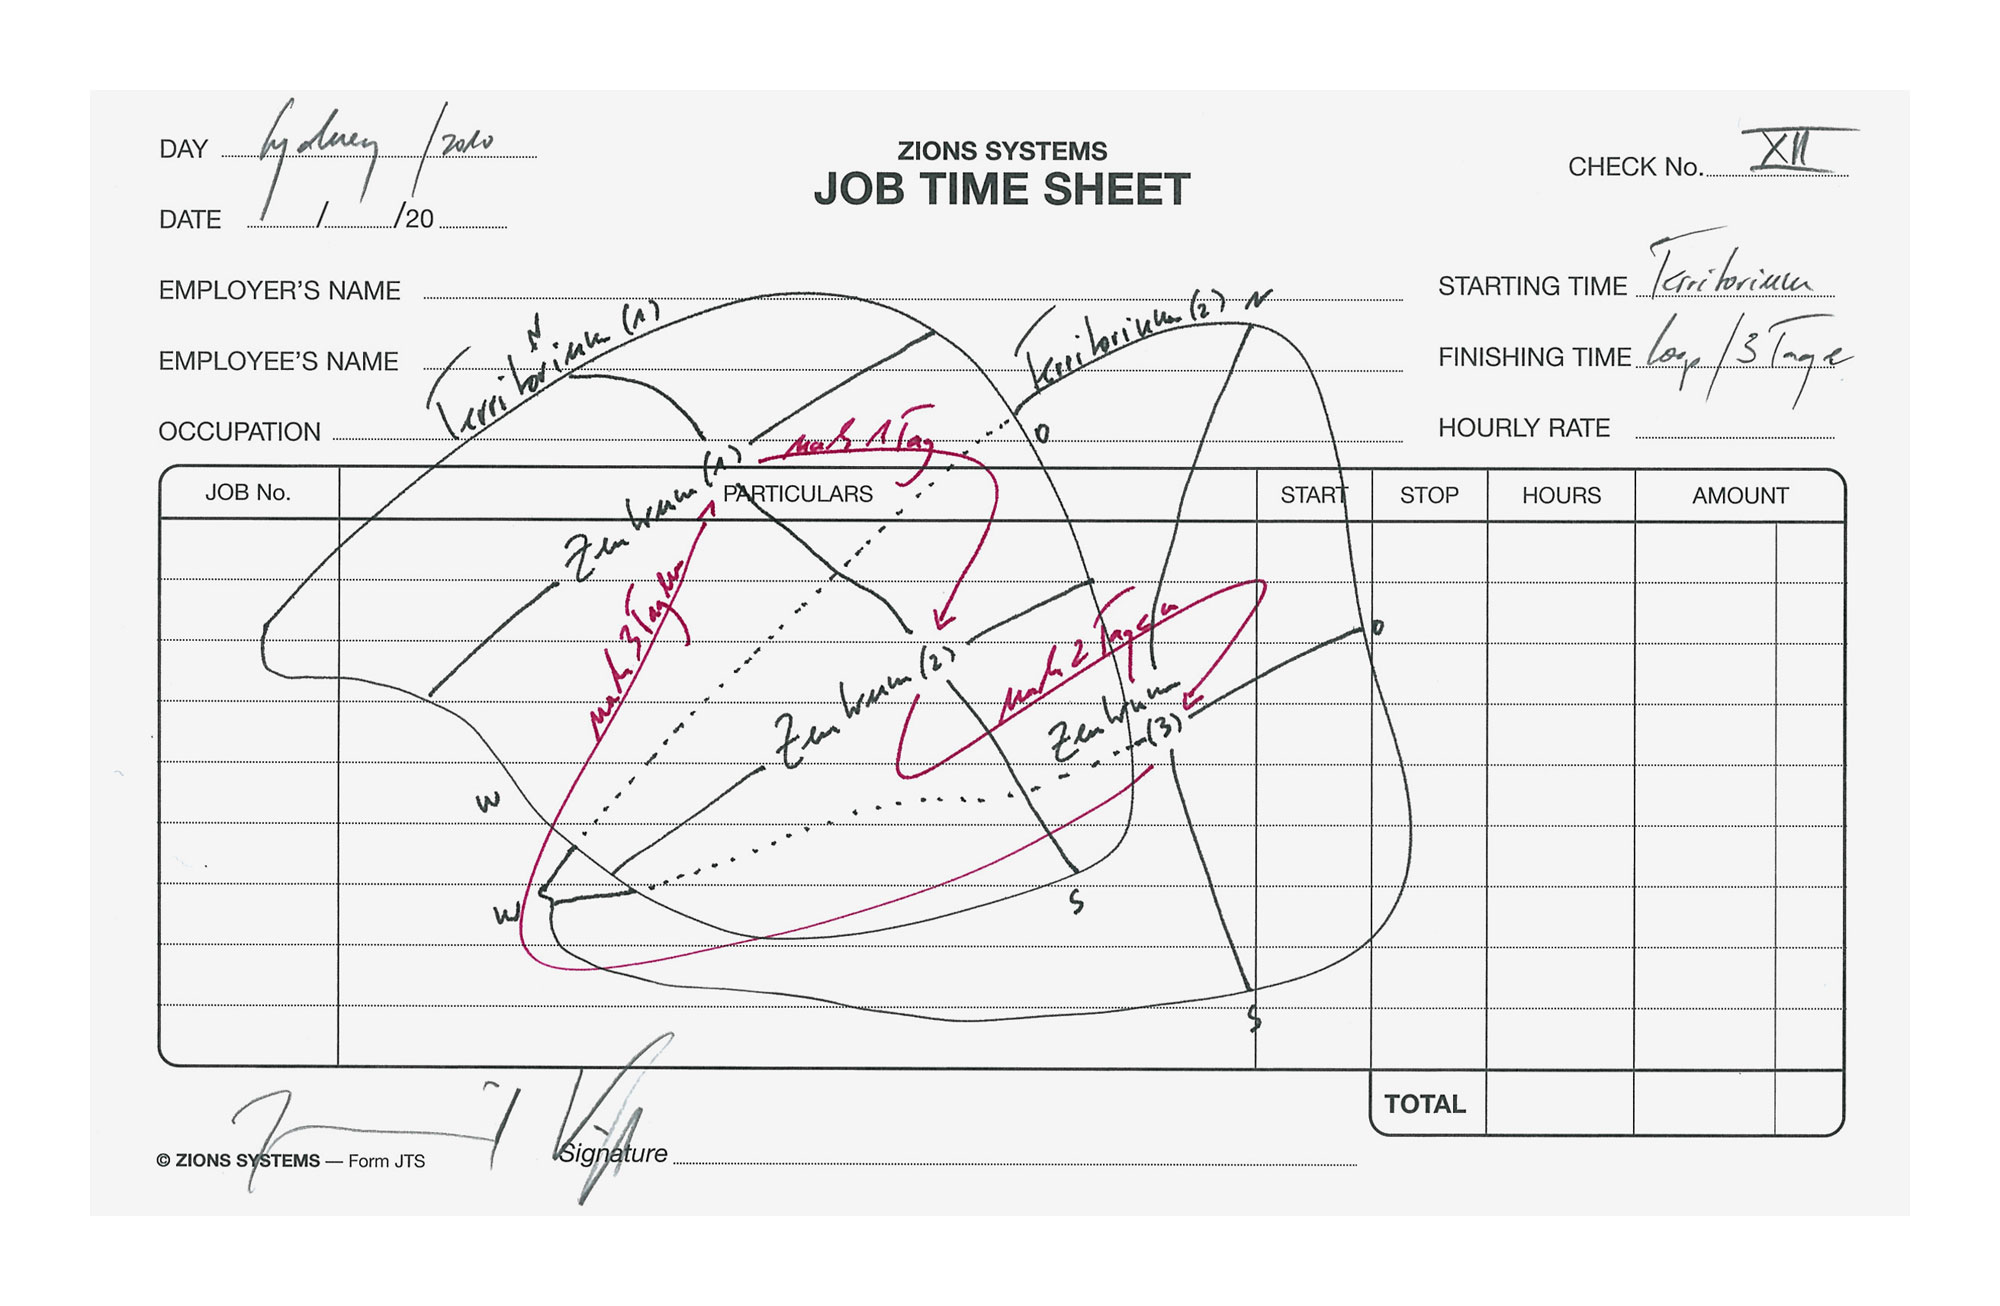 DAY Sydney / 2010
ZIONS SYSTEMS
JOB TIME SHEET
CHECK No. XII
DATE / /20
EMPLOYER'S NAME
STARTING TIME Territorium
EMPLOYEE'S NAME
FINISHING TIME loop / 3 Tage
OCCUPATION
HOURLY RATE
Territorium (1)
N
Territorium (2) N
O
nach 1 Tag
JOB No. PARTICULARS START STOP HOURS AMOUNT
Zentrum (1)
nach 3 Tagen
Zentrum (2)
nach 2 Tagen
O
Zentrum
(3)
W
W
S
S
TOTAL
© ZIONS SYSTEMS — Form JTS
Signature